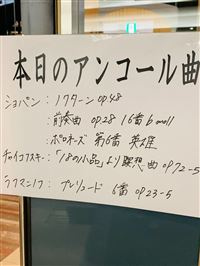 本日のアンコール曲
ショパン：ノクターン op.48
：前奏曲 op.28 16番 b moll
：ポロネーズ 第6番 英雄
チャイコフスキー：「18の小品」より 瞑想曲 op.72-5
ラフマニノフ：プレリュード 6番 op.23-5